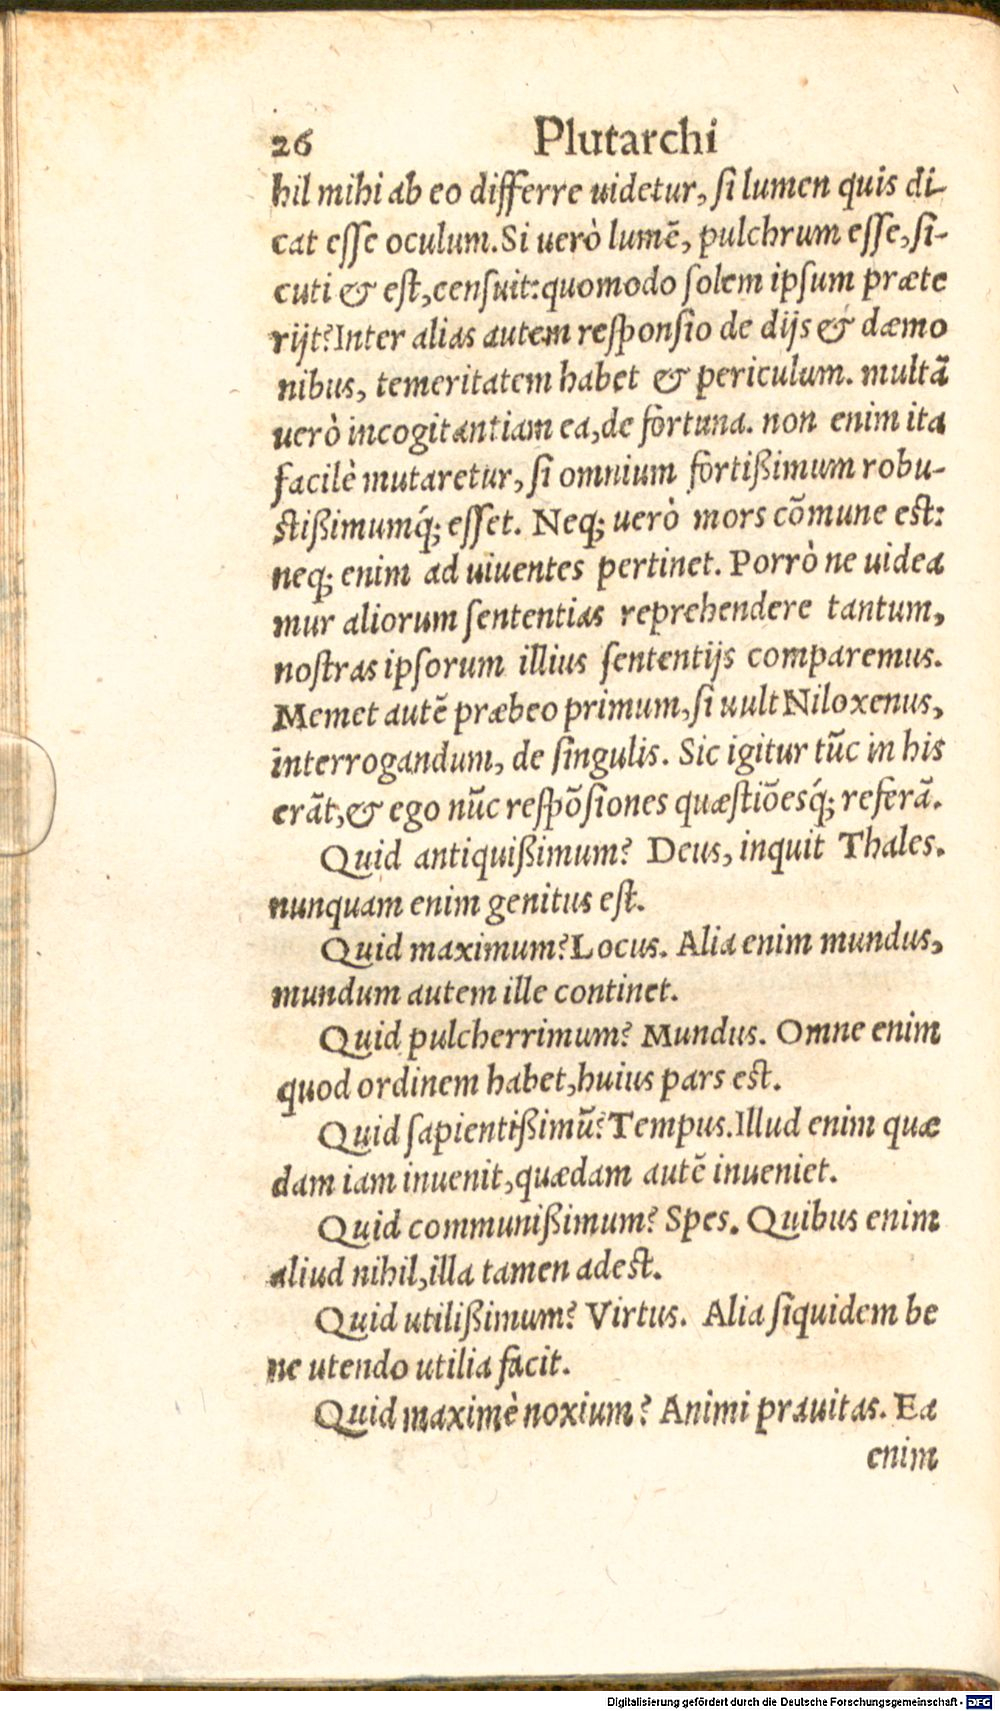 26 Plutarchi
hil mihi ab eo differre uidetur, ſi lumen quis di-
cat eſſe oculum. Si uerò lumē, pulchrum eſſe, ſi-
cuti & eſt, cenſuit: quomodo ſolem ipſum præte
rijt? Inter alias autem reſponſio de dijs & dæmo
nibus, temeritatem habet & periculum. multā
uerò incogitantiam ea, de fortuna. non enim ita
facilè mutaretur, ſi omnium fortißimum robu-
ſtißimumq́; eſſet. Neq; uerò mors cōmune eſt:
neq; enim ad uiuentes pertinet. Porrò ne uidea
mur aliorum ſententias reprehendere tantum,
noſtras ipſorum illius ſententijs comparemus.
Memet autē præbeo primum, ſi uult Niloxenus,
interrogandum, de ſingulis. Sic igitur tūc in his
erāt, & ego nūc reſpōſiones quæſtiōesq́; referā.
Quid antiquißimum? Deus, inquit Thales.
nunquam enim genitus eſt.
Quid maximum? Locus. Alia enim mundus,
mundum autem ille continet.
Quid pulcherrimum? Mundus. Omne enim
quod ordinem habet, huius pars eſt.
Quid ſapientißimū? Tempus. Illud enim quæ
dam iam inuenit, quædam autē inueniet.
Quid communißimum? Spes. Quibus enim
aliud nihil, illa tamen adeſt.
Quid utilißimum? Virtus. Alia ſiquidem be
ne utendo utilia facit.
Quid maximè noxium? Animi prauitas. Ea
enim
Digitalisierung gefördert durch die Deutsche Forschungsgemeinschaft - DFG